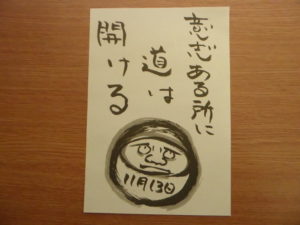 意志ある所に
道は
開ける
11月13日